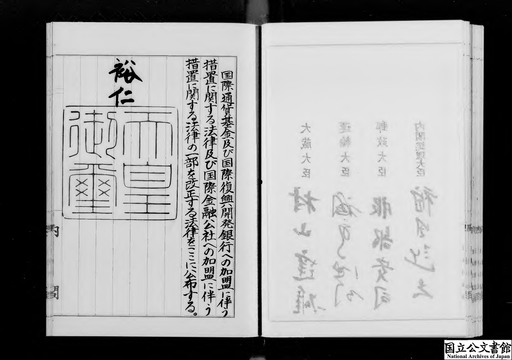 国際通貨基金及び国際復興開発銀行への加盟に伴う
措置に関する法律及び国際金融公社への加盟に伴う
措置に関する法律の一部を改正する法律をここに公布する。
裕仁
天皇
御璽
内閣
内閣総理大臣
郵政大臣
運輸大臣
大蔵大臣
国立公文書館
National Archives of Japan